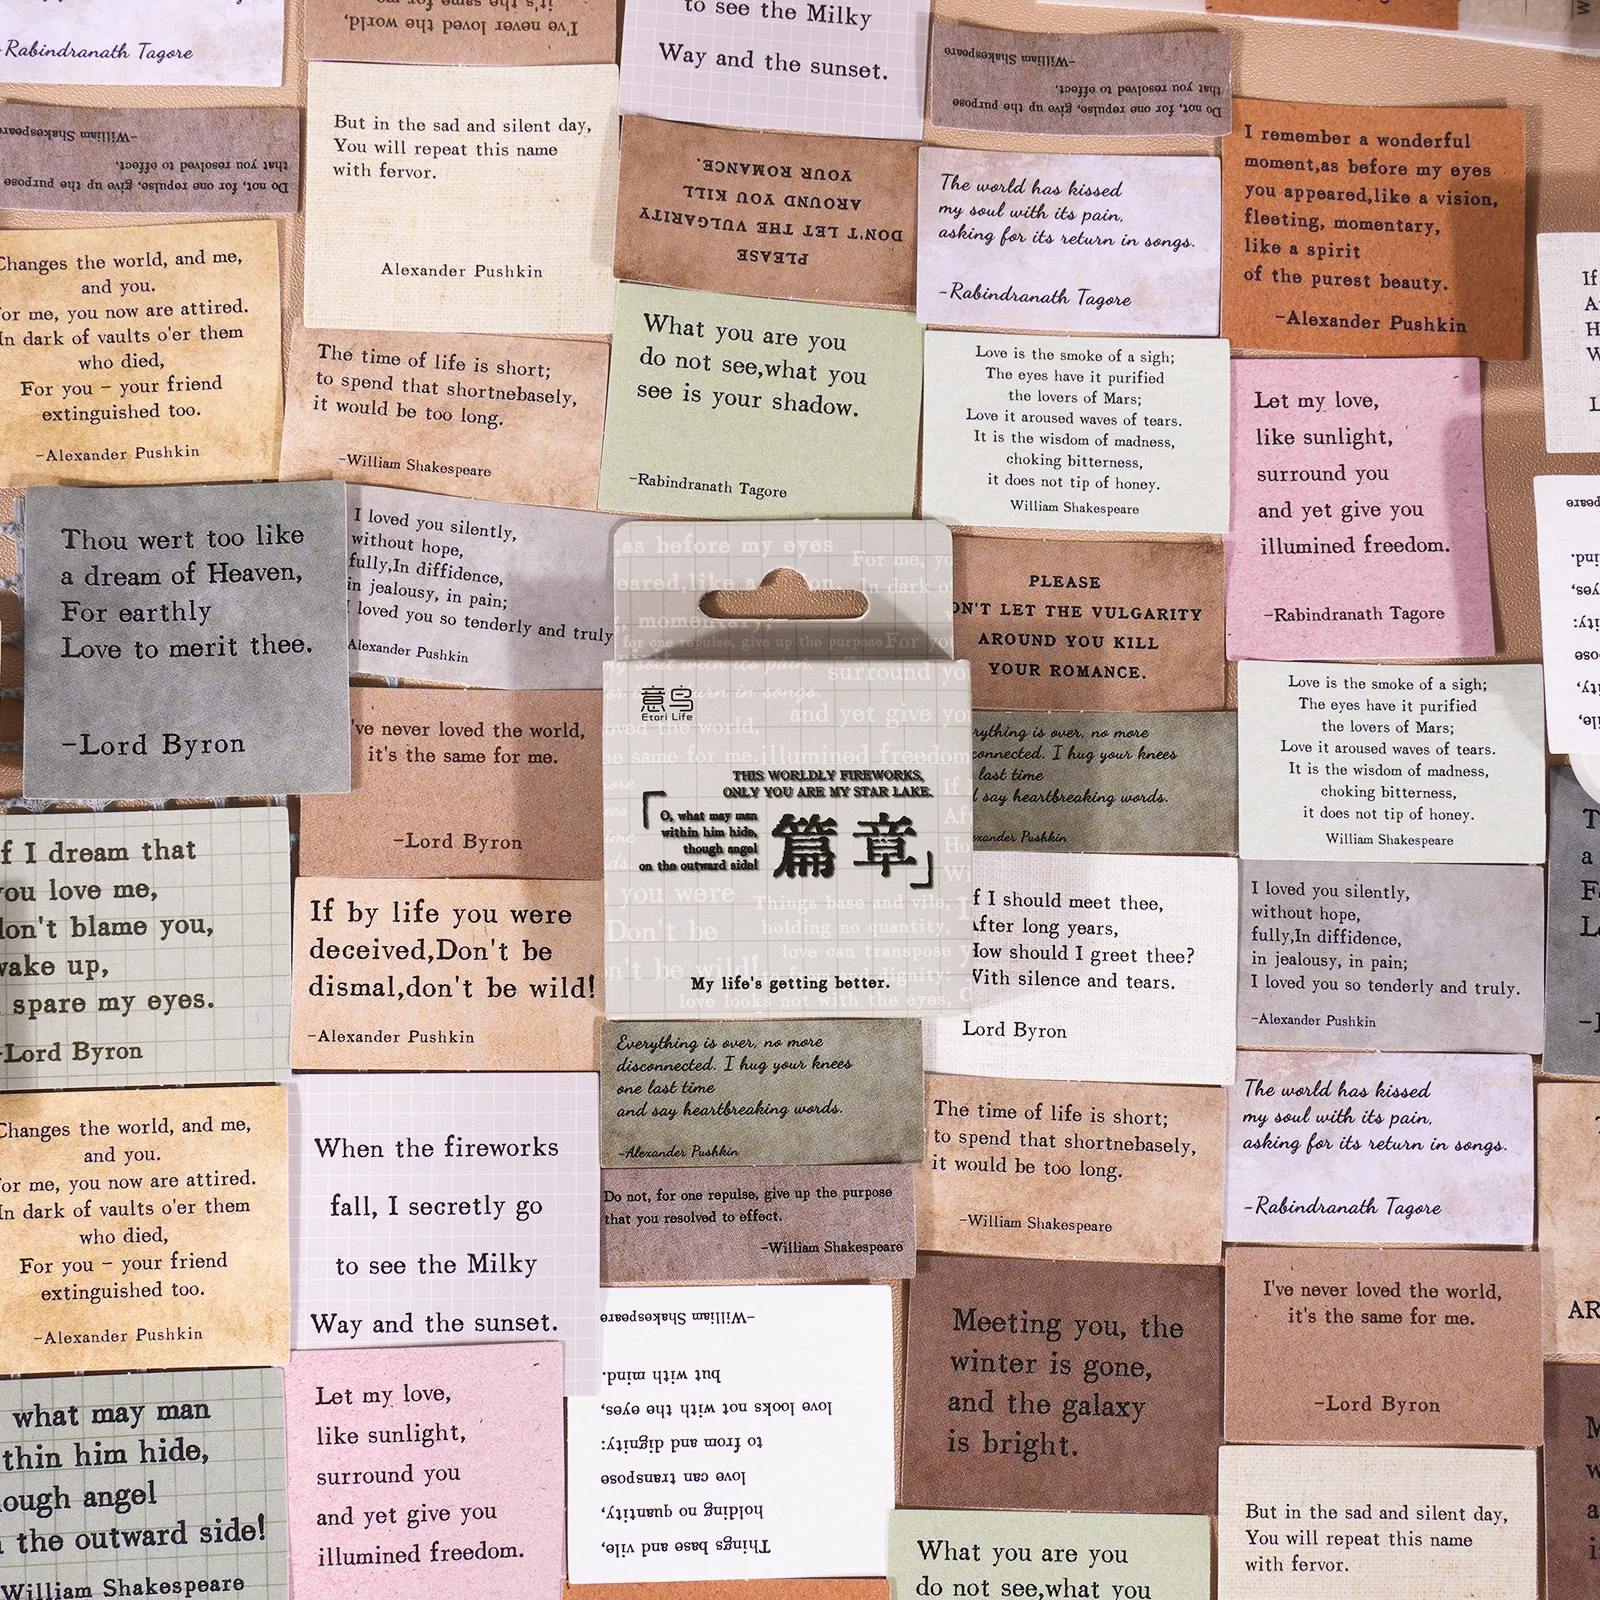 -Rabindranath Tagore
I've never loved the world,
it's the same for me
to see the Milky
Way and the sunset.
Do not, for one repulse, give up the purpose
that you resolved to effect.
-William Shakespeare
Do not, for one repulse, give up the purpose
that you resolved to effect.
-William Shakespeare
But in the sad and silent day,
You will repeat this name
with fervor.
Alexander Pushkin
PLEASE
DON'T LET THE VULGARITY
AROUND YOU KILL
YOUR ROMANCE.
The world has kissed
my soul with its pain,
asking for its return in songs.
-Rabindranath Tagore
I remember a wonderful
moment,as before my eyes
you appeared,like a vision,
fleeting, momentary,
like a spirit
of the purest beauty.
-Alexander Pushkin
Changes the world, and me,
and you.
For me, you now are attired.
In dark of vaults o'er them
who died,
For you - your friend
extinguished too.
-Alexander Pushkin
The time of life is short;
to spend that shortnebasely,
it would be too long.
-William Shakespeare
What you are you
do not see,what you
see is your shadow.
-Rabindranath Tagore
Love is the smoke of a sigh;
The eyes have it purified
the lovers of Mars;
Love it aroused waves of tears.
It is the wisdom of madness,
choking bitterness,
it does not tip of honey.
William Shakespeare
Let my love,
like sunlight,
surround you
and yet give you
illumined freedom.
-Rabindranath Tagore
Thou wert too like
a dream of Heaven,
For earthly
Love to merit thee.
-Lord Byron
I loved you silently,
without hope,
fully,In diffidence,
in jealousy, in pain;
I loved you so tenderly and truly
Alexander Pushkin
,as before my eyes
For me, yo
In dark of
for one repulse, give up the purpose
my soul with its pain,
surround yo
for its return in songs.
and yet give yo
loved the world,
same for me.
illumined freedom
意鸟
Etori Life
THIS WORLDLY FIREWORKS,
ONLY YOU ARE MY STAR LAKE.
「O, what may man
within him hide,
though angel
on the outward side!
篇章」
you were
Don't be
Things base and vile,
holding no quantity,
love can transpose
to from and dignity:
love looks not with the eyes,
My life's getting better.
PLEASE
ON'T LET THE VULGARITY
AROUND YOU KILL
YOUR ROMANCE.
rything is over, no more
connected. I hug your knees
last time
say heartbreaking words.
exander Pushkin
Love is the smoke of a sigh;
The eyes have it purified
the lovers of Mars;
Love it aroused waves of tears.
It is the wisdom of madness,
choking bitterness,
it does not tip of honey.
William Shakespeare
've never loved the world,
it's the same for me.
-Lord Byron
If I dream that
you love me,
don't blame you,
wake up,
spare my eyes.
-Lord Byron
If by life you were
deceived,Don't be
dismal,don't be wild!
-Alexander Pushkin
If I should meet thee,
After long years,
How should I greet thee?
With silence and tears.
Lord Byron
I loved you silently,
without hope,
fully,In diffidence,
in jealousy, in pain;
I loved you so tenderly and truly.
-Alexander Pushkin
Everything is over, no more
disconnected. I hug your knees
one last time
and say heartbreaking words.
-Alexander Pushkin
Changes the world, and me,
and you.
For me, you now are attired.
In dark of vaults o'er them
who died,
For you - your friend
extinguished too.
-Alexander Pushkin
When the fireworks
fall, I secretly go
to see the Milky
Way and the sunset.
Do not, for one repulse, give up the purpose
that you resolved to effect.
-William Shakespeare
The time of life is short;
to spend that shortnebasely,
it would be too long.
-William Shakespeare
The world has kissed
my soul with its pain,
asking for its return in songs.
-Rabindranath Tagore
Meeting you, the
winter is gone,
and the galaxy
is bright.
I've never loved the world,
it's the same for me.
-Lord Byron
what may man
thin him hide,
ough angel
the outward side!
William Shakespeare
Let my love,
like sunlight,
surround you
and yet give you
illumined freedom.
Things base and vile,
holding no quantity,
love can transpose
to from and dignity:
love looks not with the eyes,
but with mind.
-William Shakespeare
What you are you
do not see,what you
But in the sad and silent day,
You will repeat this name
with fervor.